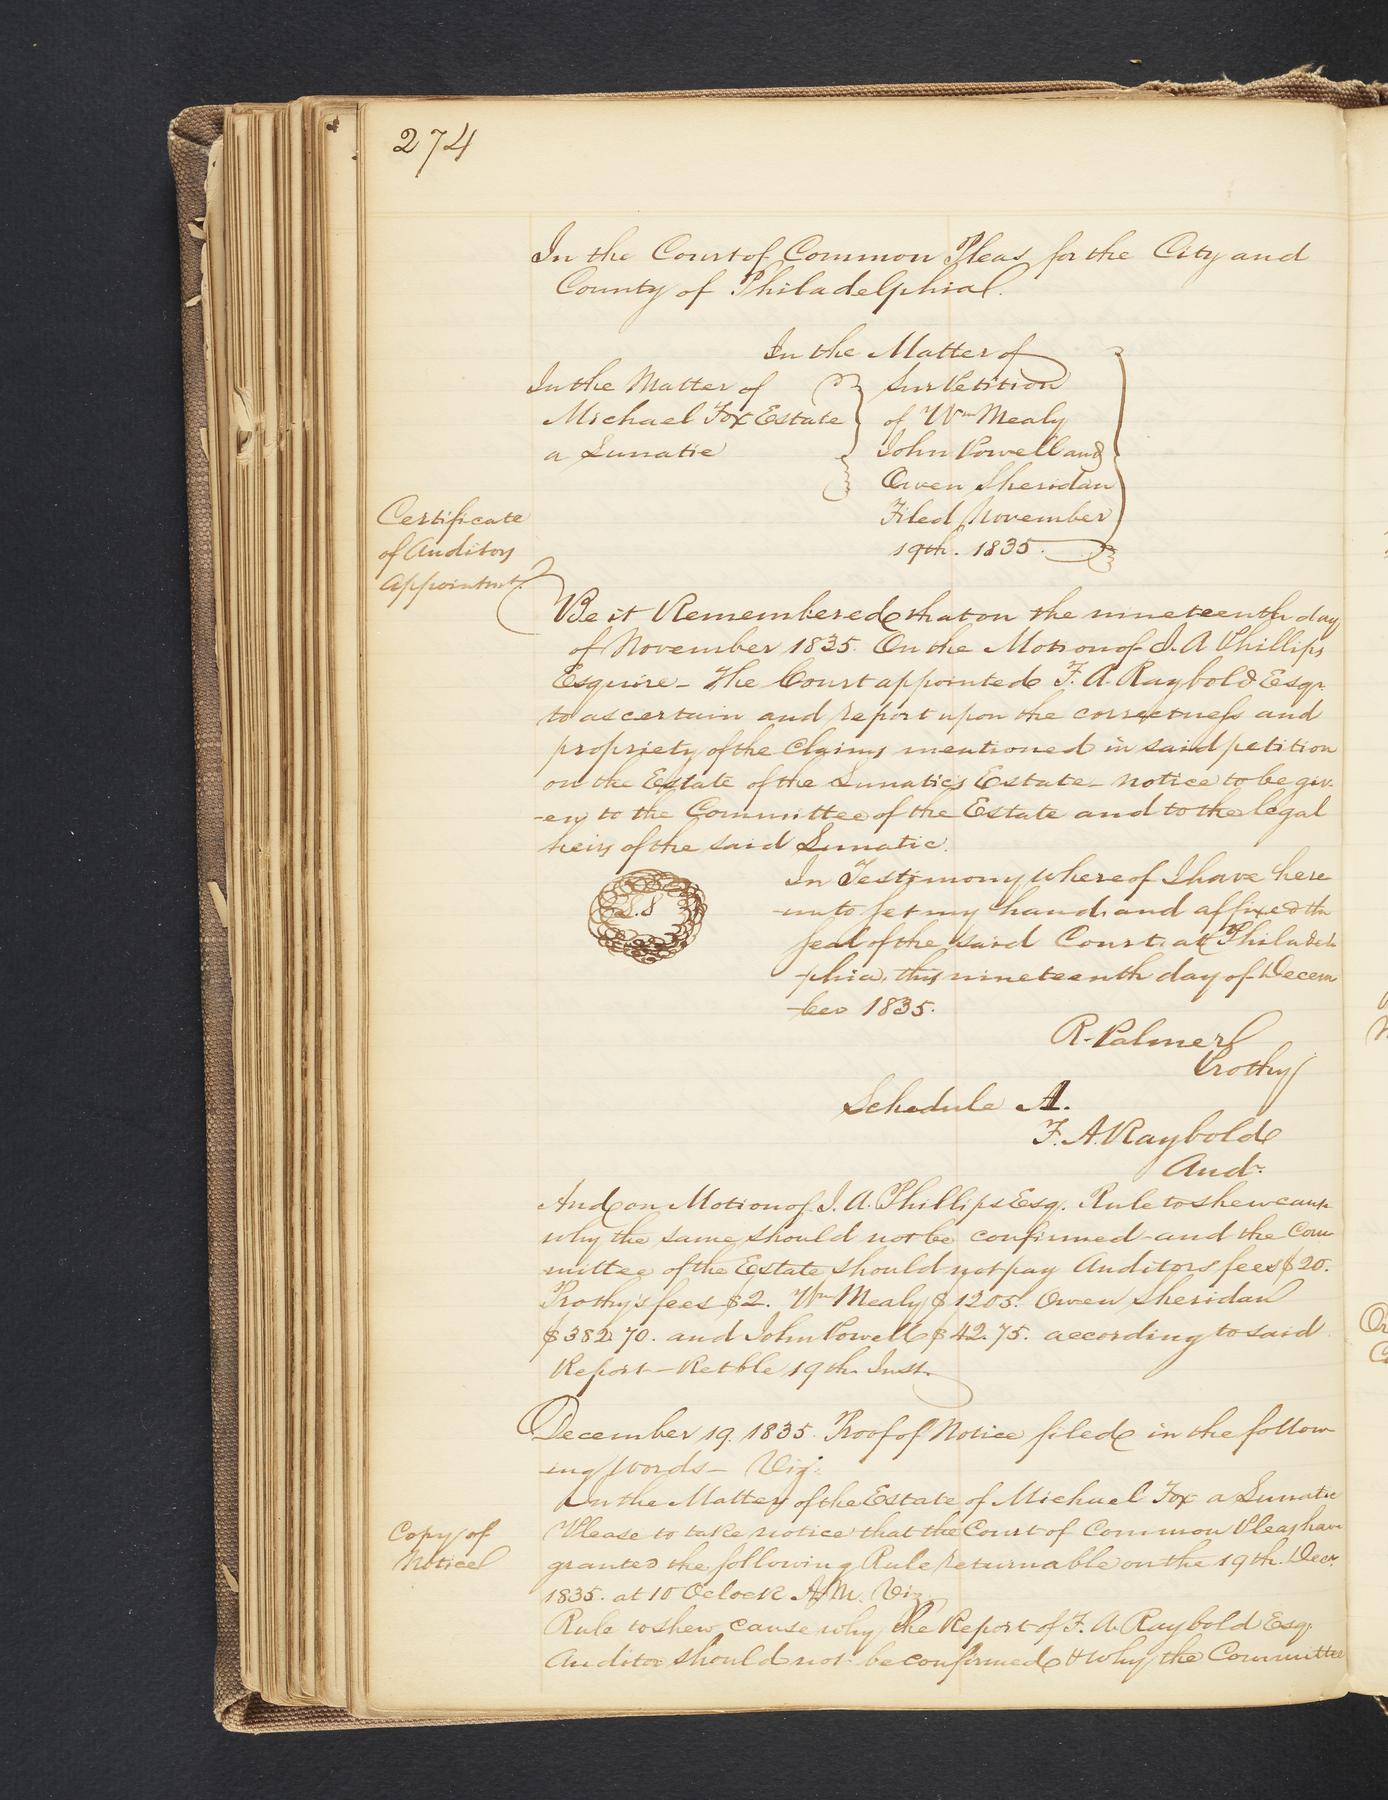 274
In the Court of Common Pleas for the City and
County of Philadelphia.
In the Matter of
In the Matter of
Michael Fox Estate
a Lunatic
Sur Petition
of Wm Mealy
John Powell and
Owen Sheridan
Filed November
19th. 1835.
Certificate
of Auditors
appointmt.
Be it Remembered that on the nineteenth day
of November 1835. On the Motion of J. A Phillips
Esquire - The Court appointed F. A. Raybold Esqr.
to ascertain and report upon the correctness and
propriety of the Claims mentioned in said petition
on the Estate of the Lunatic's Estate - notice to be giv-
-en to the Committee of the Estate and to the legal
heirs of the said Lunatic.
L.S
In Testimony whereof I have here
-unto set my hand and affixed the
seal of the said Court at Philadel
-phia, this nineteenth day of Decem
-ber 1835.
R. Palmer
Prothy
Schedule A.
F. A. Raybold
Audr.
And on Motion of J. A. Phillips Esq. Rule to shew cause
why the same should not be confirmed and the Com
mittee of the Estate should not pay Auditors fees $20.
Prothy's fees $2. Wm Mealy $1205. Owen Sheridan
$382.70. and John Powell $42.75. according to said
Report - Retble 19th. Inst.
December 19. 1835. Proof of Notice filed in the follow
-ing words - Viz:
In the Matter of the Estate of Michael Fox a Lunatic
Copy of
Notice
Please to take notice that the Court of Common Pleas have
granted the following Rule returnable on the 19th. Decr.
1835. at 10 Oclock A,M. Viz,
Rule to shew cause why the Report of F. A. Raybold Esq.
Auditor should not be confirmed & why the Committee